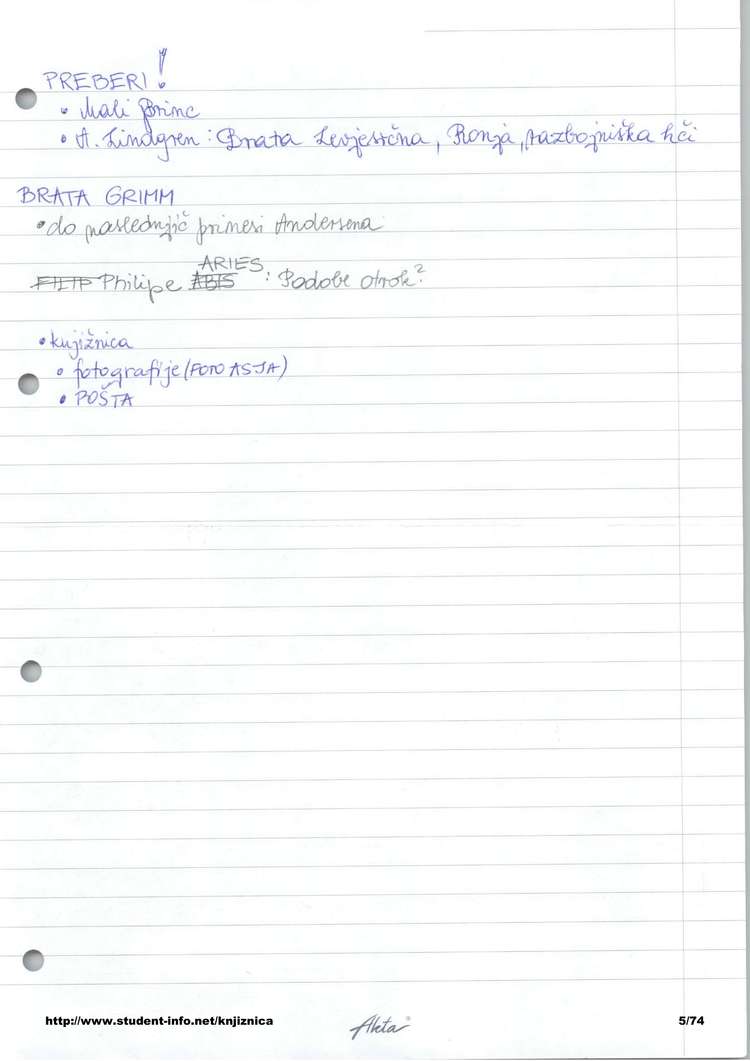 PREBERI!
• Mali princ
• A. Lindgren: Brata Levjesrčna, Ronja, razbojniška hči
BRATA GRIMM
• do naslednjič prinesi Andersena
FILIP Philipe ABIS ARIES: Podobe otrok?
• knjižnica
• fotografije (FOTO ASJA)
• POŠTA
http://www.student-info.net/knjiznica
Akta
5/74